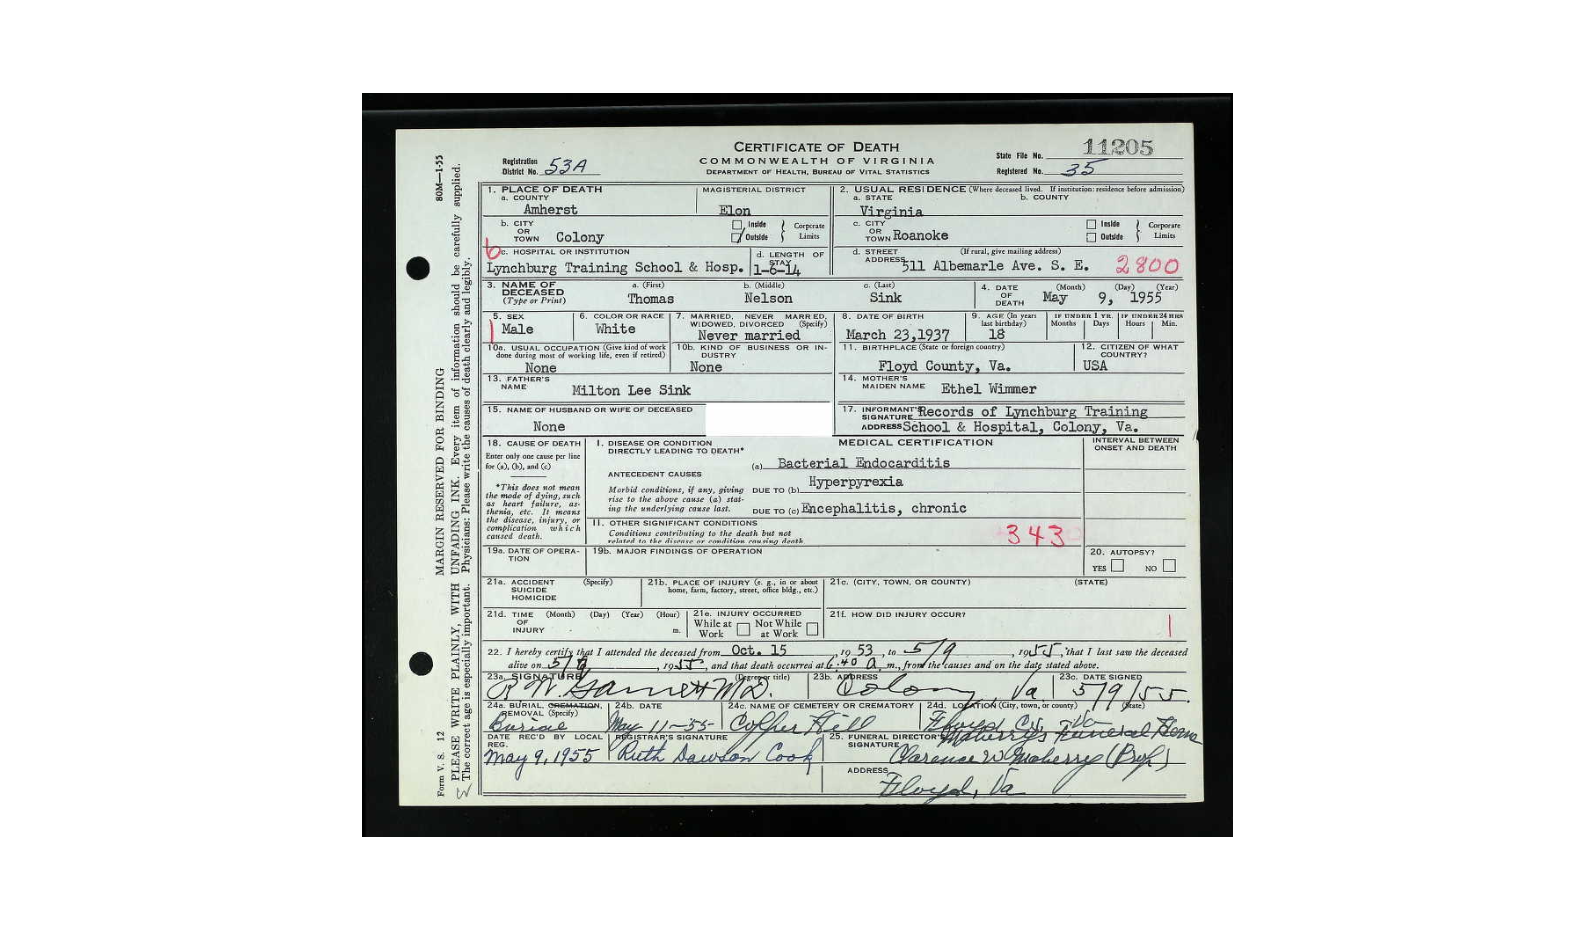 CERTIFICATE OF DEATH
COMMONWEALTH OF VIRGINIA
DEPARTMENT OF HEALTH, BUREAU OF VITAL STATISTICS
Registration District No. 53A
State File No. 11205
Registered No. 35
80M—1-55
MARGIN RESERVED FOR BINDING
PLEASE WRITE PLAINLY, WITH UNFADING INK. Every item of information should be carefully supplied.
The correct age is especially important. Physicians: Please write the causes of death clearly and legibly.
Form V. S. 12
1. PLACE OF DEATH
a. COUNTY
Amherst
MAGISTERIAL DISTRICT
Elon
2. USUAL RESIDENCE (Where deceased lived. If institution: residence before admission)
a. STATE
b. COUNTY
Virginia
b. CITY OR TOWN Colony
Inside
Outside
Corporate Limits
c. CITY OR TOWN Roanoke
Inside
Outside
Corporate Limits
6
c. HOSPITAL OR INSTITUTION
Lynchburg Training School & Hosp.
d. LENGTH OF STAY
1-6-14
d. STREET ADDRESS (If rural, give mailing address)
511 Albemarle Ave. S. E.
2800
3. NAME OF DECEASED (Type or Print)
a. (First) b. (Middle) c. (Last)
Thomas Nelson Sink
4. DATE OF DEATH (Month) (Day) (Year)
May 9, 1955
5. SEX
Male
6. COLOR OR RACE
White
7. MARRIED, NEVER MARRIED, WIDOWED, DIVORCED (Specify)
Never married
8. DATE OF BIRTH
March 23,1937
9. AGE (In years last birthday)
18
IF UNDER 1 YR. Months Days
IF UNDER 24 HRS Hours Min.
10a. USUAL OCCUPATION (Give kind of work done during most of working life, even if retired)
None
10b. KIND OF BUSINESS OR INDUSTRY
None
11. BIRTHPLACE (State or foreign country)
Floyd County, Va.
12. CITIZEN OF WHAT COUNTRY?
USA
13. FATHER'S NAME
Milton Lee Sink
14. MOTHER'S MAIDEN NAME Ethel Wimmer
15. NAME OF HUSBAND OR WIFE OF DECEASED
None
17. INFORMANT'S SIGNATURE Records of Lynchburg Training
ADDRESS School & Hospital, Colony, Va.
18. CAUSE OF DEATH
Enter only one cause per line for (a), (b), and (c)
*This does not mean the mode of dying, such as heart failure, asthenia, etc. It means the disease, injury, or complication which caused death.
MEDICAL CERTIFICATION
INTERVAL BETWEEN ONSET AND DEATH
I. DISEASE OR CONDITION DIRECTLY LEADING TO DEATH*
(a) Bacterial Endocarditis
ANTECEDENT CAUSES
Morbid conditions, if any, giving rise to the above cause (a) stating the underlying cause last.
DUE TO (b) Hyperpyrexia
DUE TO (c) Encephalitis, chronic
II. OTHER SIGNIFICANT CONDITIONS
Conditions contributing to the death but not related to the disease or condition causing death.
343
19a. DATE OF OPERATION
19b. MAJOR FINDINGS OF OPERATION
20. AUTOPSY?
YES NO
21a. ACCIDENT SUICIDE HOMICIDE (Specify)
21b. PLACE OF INJURY (e. g., in or about home, farm, factory, street, office bldg., etc.)
21c. (CITY, TOWN, OR COUNTY) (STATE)
21d. TIME OF INJURY (Month) (Day) (Year) (Hour) m.
21e. INJURY OCCURRED
While at Work
Not While at Work
21f. HOW DID INJURY OCCUR?
22. I hereby certify that I attended the deceased from Oct. 15, 1953, to 5/9, 1955, that I last saw the deceased
alive on 5/9, 1955, and that death occurred at 6:40 a m., from the causes and on the date stated above.
23a. SIGNATURE (Degree or title)
R W Garnett MD.
23b. ADDRESS
Colony Va
23c. DATE SIGNED
5/9/55
24a. BURIAL, CREMATION, REMOVAL (Specify)
Burial
24b. DATE
May 11-55
24c. NAME OF CEMETERY OR CREMATORY
Copper Hill
24d. LOCATION (City, town, or county) (State)
Floyd Co. Va
DATE REC'D BY LOCAL REG.
May 9, 1955
REGISTRAR'S SIGNATURE
Ruth Dawson Cook
25. FUNERAL DIRECTOR'S SIGNATURE
Maberry's Funeral Home
Clarence W Maberry (Prop)
ADDRESS
Floyd, Va